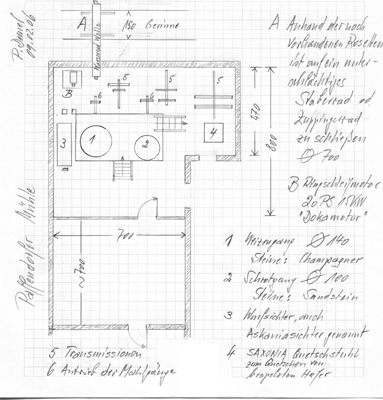 P. Daniel
09.12.06
Paffendorfer Mühle
A
150
Gerinne
B
5
5
5
6
6
3
1
2
4
470
800
700
2700
A Anhand der noch
vorhandenen Rosetten
ist auf ein unter-
schlächtiges
Staberrad od
Zuppingerrad
zu schließen
Ø 700
B Ringschleifmotor
20 PS 15KW
"Dokamotor"
1 Weizengang Ø 140
Steine: Champagner
2 Schrotgang Ø 100
Steine: Sandstein
3 Wurfsichter, auch
Askaniasichter genannt
4 SAXONIA Quetschstuhl
zum Quetschen von
Hafer
5 Transmissionen
6 Antrieb der Mahlgänge